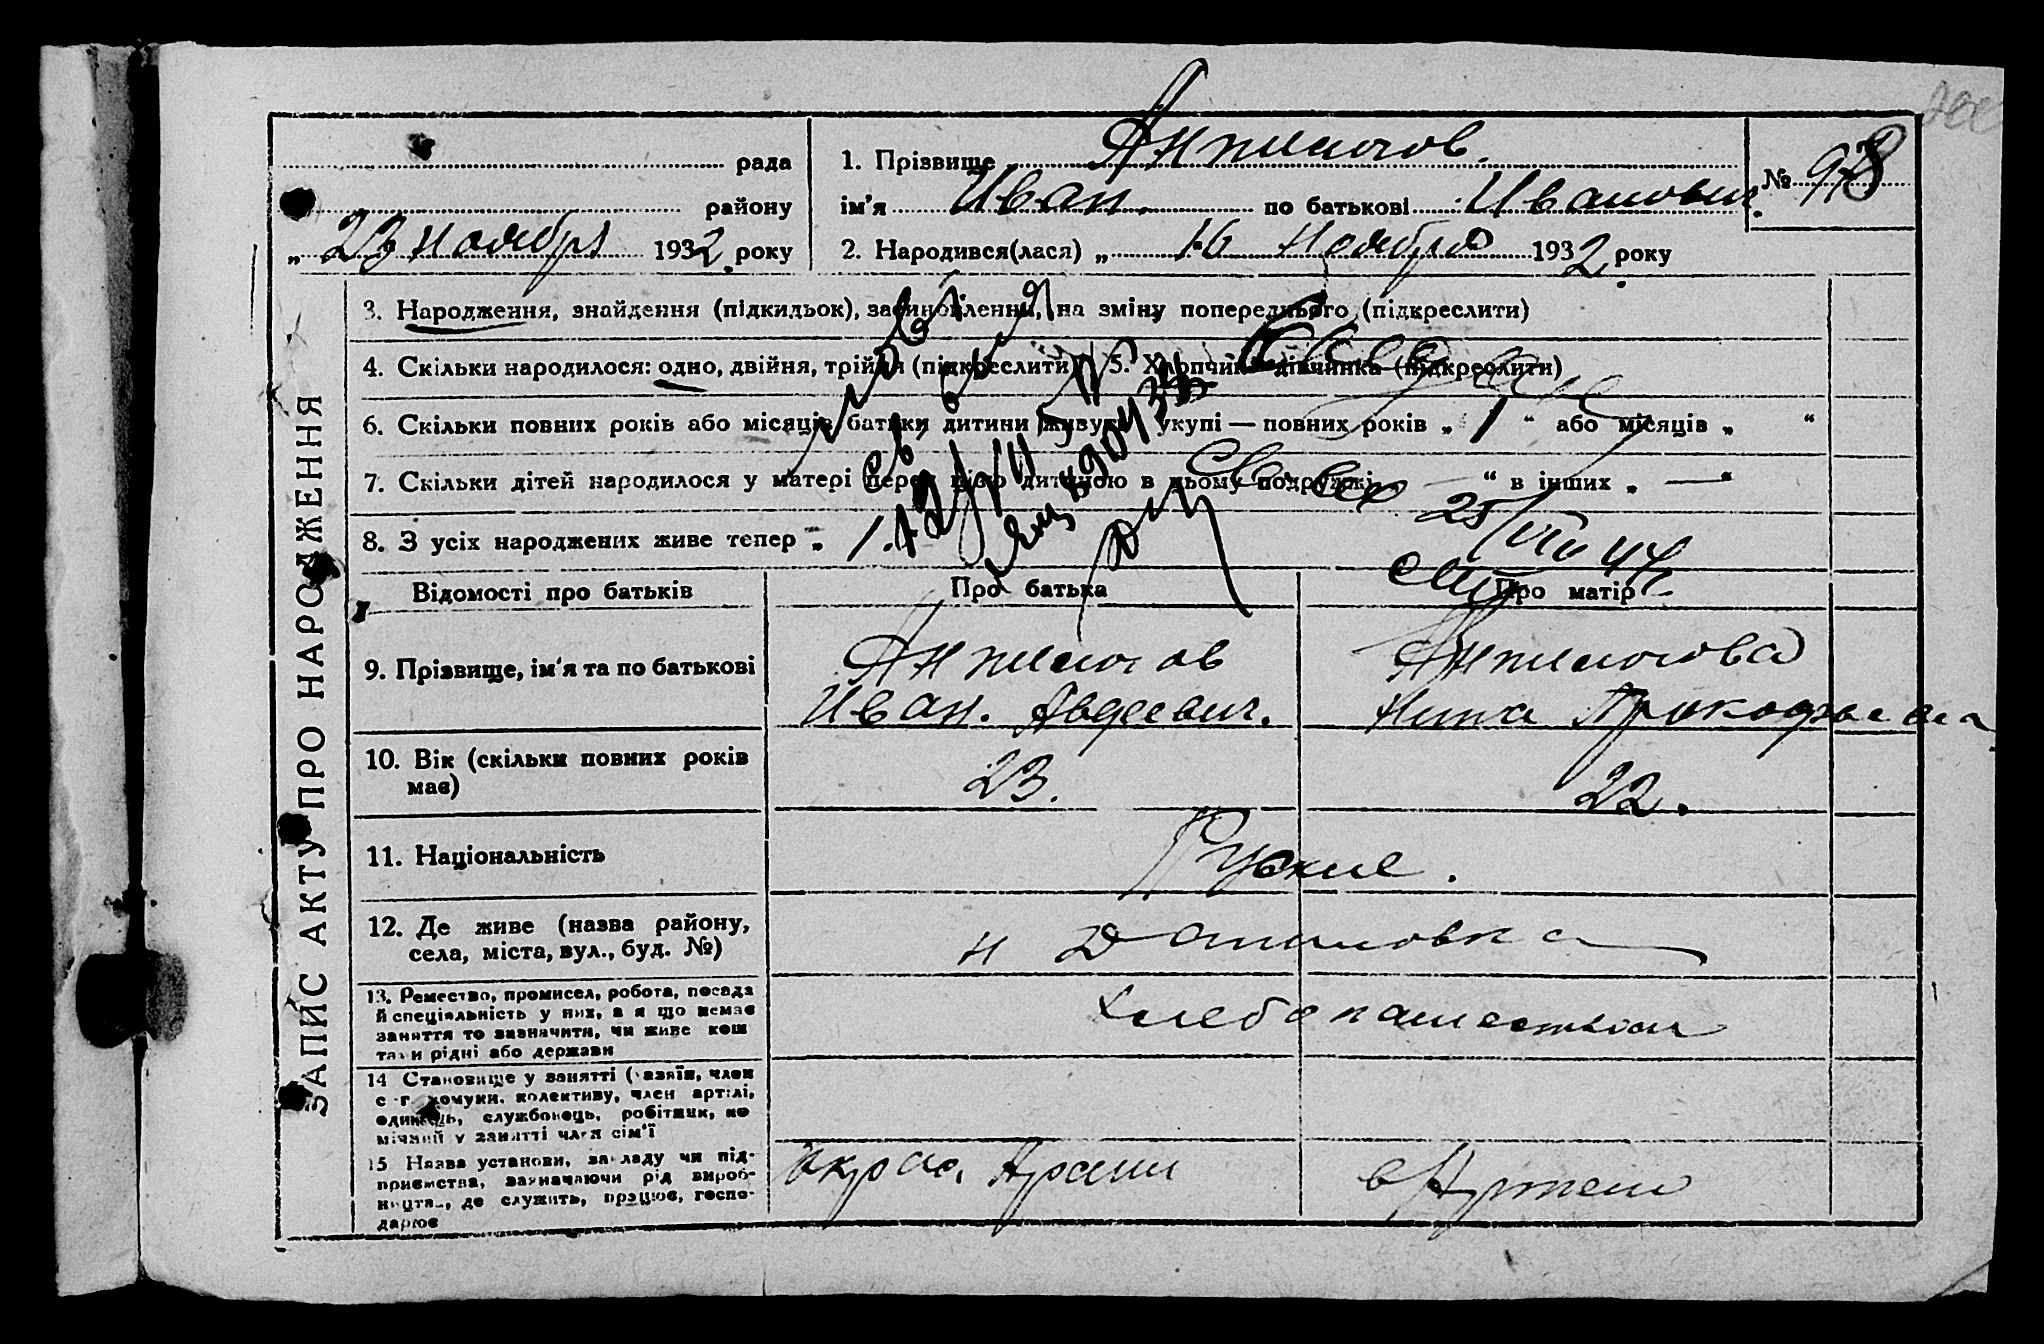 рада
району
„ 23 Ноября 1932 року
1. Прізвище Анпилогов.
ім'я Иван. по батькові Иванович.
2. Народився(лася) „ 16 Ноября 1932 року
№ 98
ЗАПИС АКТУ ПРО НАРОДЖЕННЯ
3. Народження, знайдення (підкидьок), засиновлення, на зміну попереднього (підкреслити)
4. Скільки народилося: одно, двійня, трійня (підкреслити) 5. Хлопчик дівчинка (підкреслити)
6. Скільки повних років або місяців батьки дитини живуть укупі — повних років „ 1 “ або місяців „ “
7. Скільки дітей народилося у матері перед цією дитиною в цьому подружжі — “ в інших „ — “
8. З усіх народжених живе тепер „ 1.
25/VIII 44
Відомості про батьків
Про батька
Про матір
9. Прізвище, ім'я та по батькові
Анпилогов
Иван. Авдеевич.
Анпилогова
Нина Прокофьевна
10. Вік (скільки повних років
має)
23.
22.
11. Національність
Руские.
12. Де живе (назва району,
села, міста, вул., буд. №)
н Даниловка
13. Ремество, промисел, робота, посада
й спеціяльність у них, а я що немає
заняття то зазначити, чи живе кош
тами рідні або держави
Хлебопашеством
14 Становище у занятті (хазяїн, член
с-г. комуни. колективу, член артілі,
одинець, службовець, робітник, по
мічний у занятті член сім'ї
15 Назва установи, закладу чи під-
приємства, зазначаючи рід вироб-
ництва, де служить, працює, госпо-
дарює
в Артели